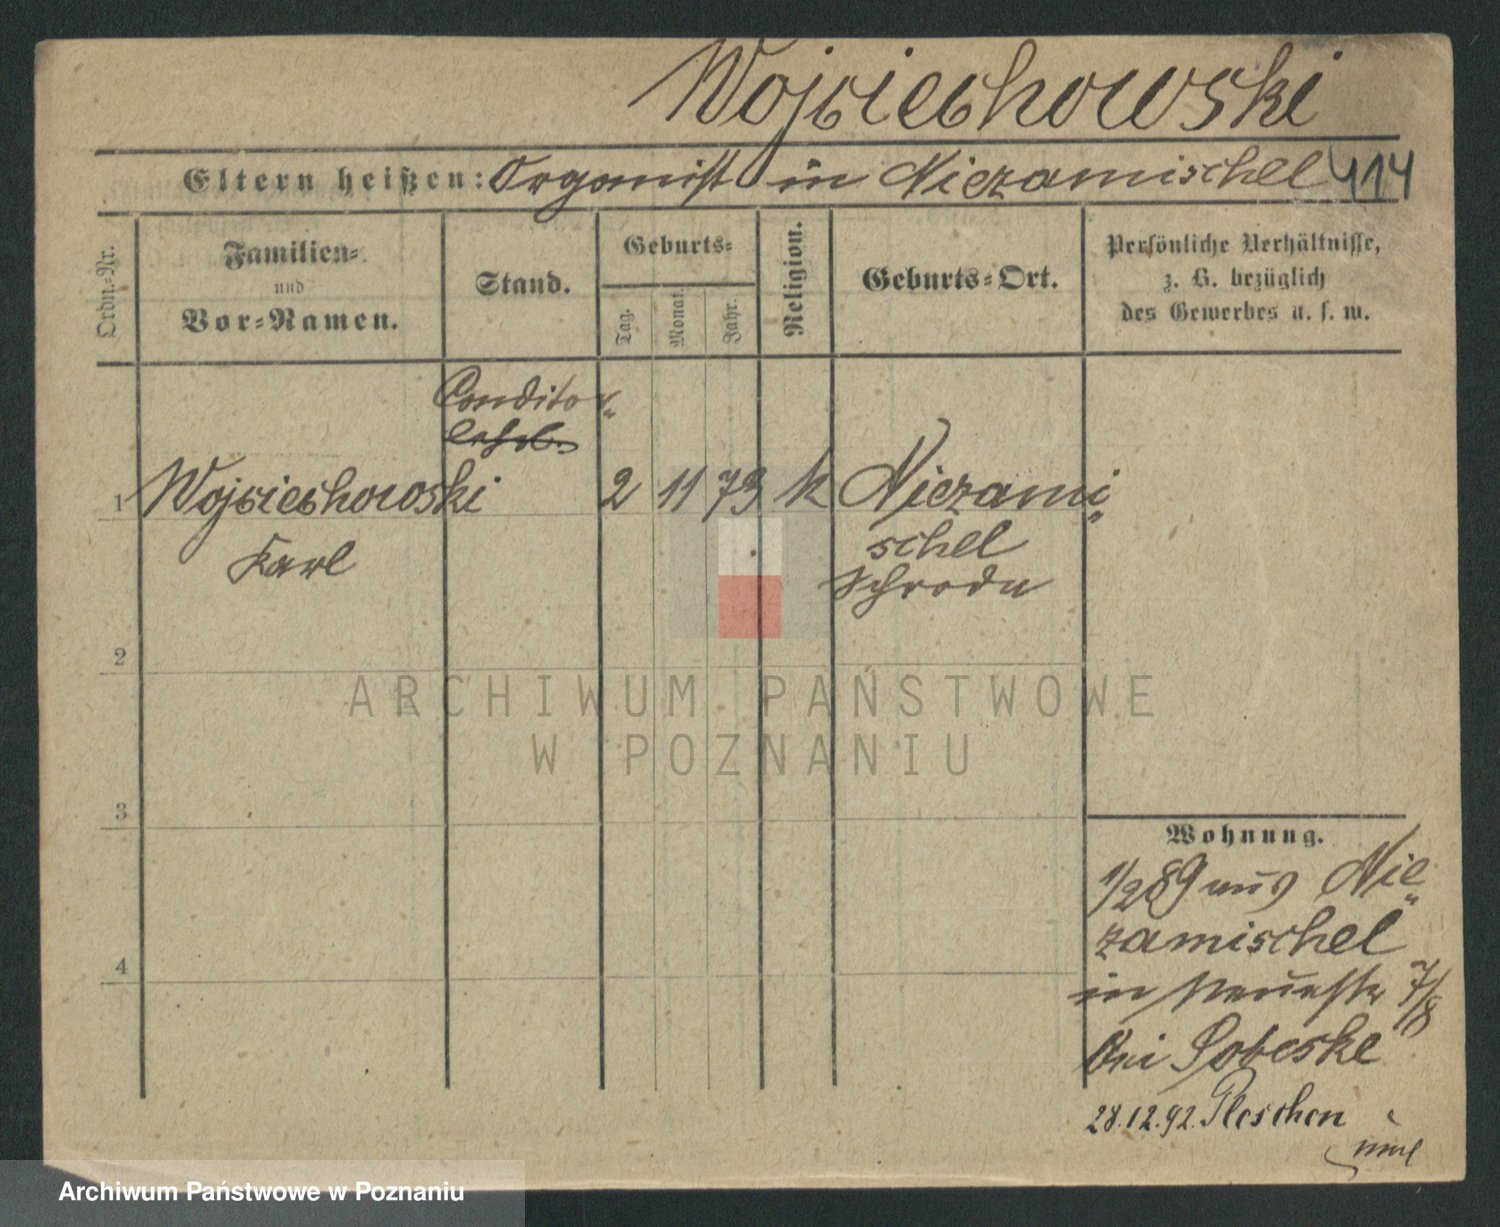 Wojciechowski
Eltern heißen: Organist in Niezamischel 414
Ordn.-Nr.
Familien-
und
Vor-Namen.
Stand.
Geburts-
Tag. Monat. Jahr.
Religion.
Geburts-Ort.
Persönliche Verhältnisse,
z. B. bezüglich
des Gewerbes u. s. w.
Conditor-
1 Wojciechowski 2 11 73 k Niezami-
Karl schel
Schroda
2
3
4
Wohnung.
1/2 89 aus Nie-
zamischel
in Neuestr 7/8
bei Sobeske
28.12.92. Pleschen
ARCHIWUM PAŃSTWOWE
W POZNANIU
Archiwum Państwowe w Poznaniu